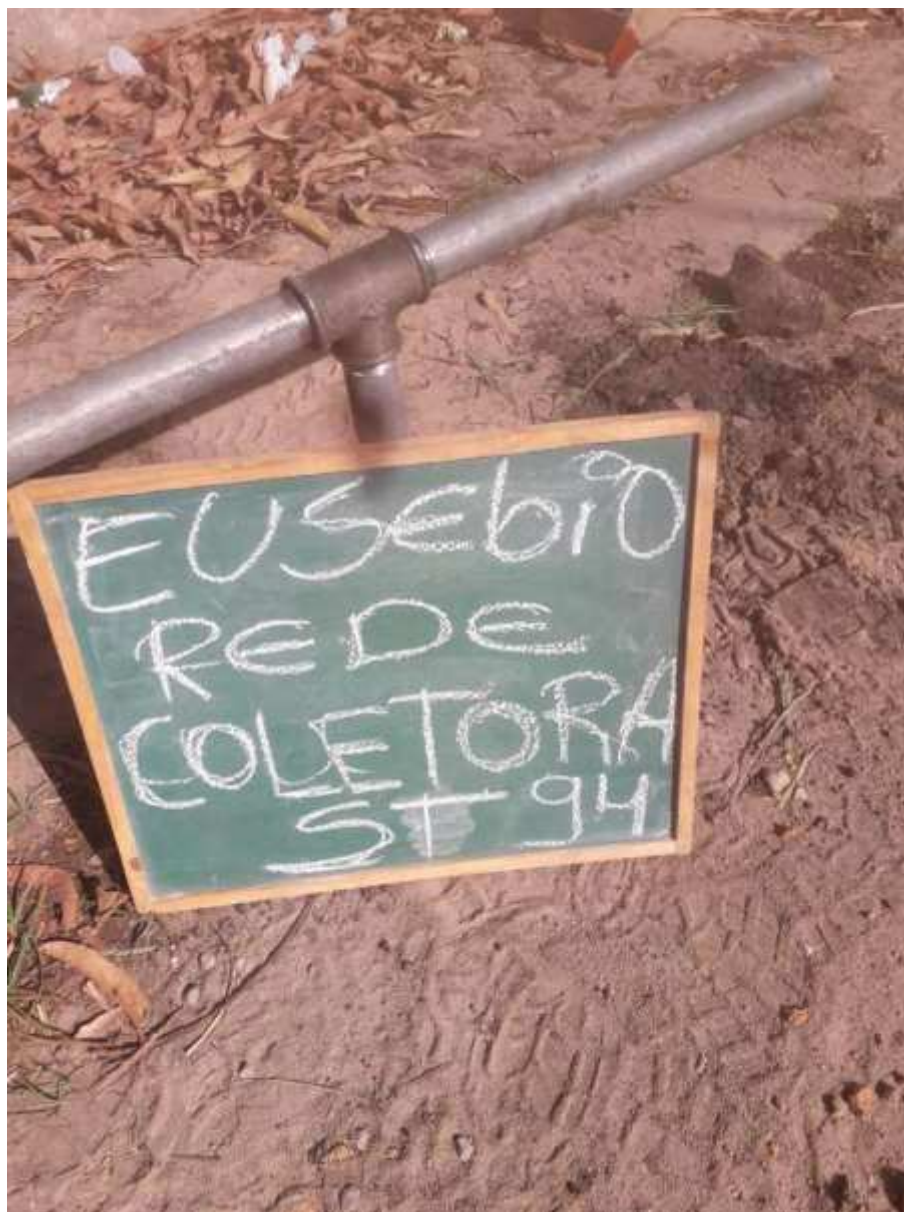 EUSEbiO
REDE
COLETORA
ST 94